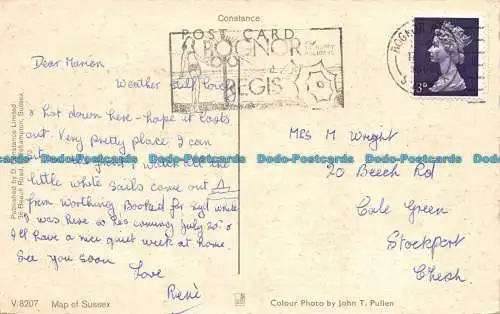 Constance
POST CARD
BOGNOR
REGIS
BOGNOR
3D
Dear Marion,
Weather still lovely
& hot down here - hope it lasts
out. Very pretty place. I can
sit watch all the
little white sails come out
from Worthing. Booked for
I was here so
coming July 20th &
I'll have a nice quiet week at home.
See you soon
Love
René
Mrs M Wright
20 Beech Rd
Cale Green
Stockport
Chesh.
Published by D. Constance Limited
Beach Road, Littlehampton, Sussex.
V.8207 Map of Sussex
Colour Photo by John T. Pullen
Dodo-Postcards Dodo-Postcards Dodo-Postcards Dodo-Postcards